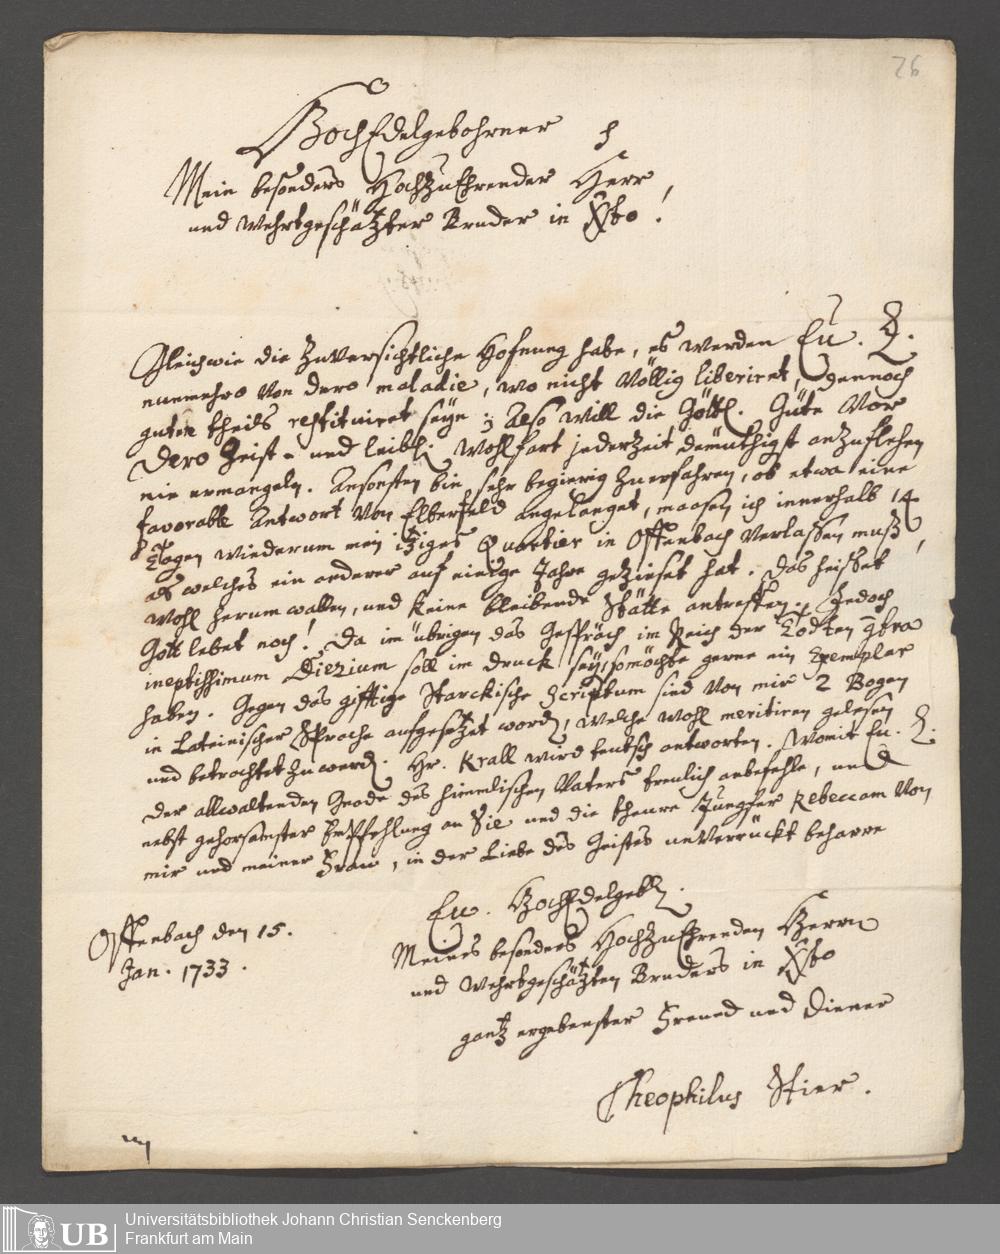 26
HochEdelgebohrner
Mein besonders HochzuEhrender Herr,
und Wehrtgeschätzter Bruder in Xsto!
Gleichwie die zuversichtliche Hofnung habe, es werden Eu. H.
nunmehro von dero maladie, wo nicht völlig liberiret, dennoch
guten theils restituiret seyn; Also will die Göttl. Güte vor
Dero Geist- und leibl. Wohlfart jederzeit demüthigst anzuflehen
nie ermangeln. Ansonsten bin sehr begierig zuerfahren, ob etwa eine
favorable Antwort von Elberfeld angelanget, maasen ich innerhalb 14
Tagen wiederum mein itziges Quartier in Offenbach verlassen muß,
als welches ein anderer auf einige Jahre gezinset hat. Das heisset
wohl herum wallen, und keine bleibende Stätte antreffen. Jedoch
Gott lebet noch! Da im übrigen das Gespräch im Reich der Todten
ineptissimum Diezium soll im druck seyn, so möchte gerne ein Exemplar
haben. Gegen das gifftige Starckische Scriptum sind von mir 2 Bogen
in Lateinischer Sprache aufgesetzet word., welche wohl meritiren gelesen
und betrachtet zu werd. Hr. Krall wird teutsch antworten. Womit Eu. H.
der allwaltenden Gnade des himmlischen Vaters treulich anbefehle, und
nebst gehorsamster Empfehlung an Sie und die theure Jungfer Rebeccam von
mir und meiner Frau, in der Liebe des Geistes unverrückt beharre
Eu. HochEdelgeb.
Meines besonders HochzuEhrenden Herrn
und Wehrtgeschätzten Bruders in Xsto
Offenbach den 15.
Jan. 1733.
gantz ergebenster Freund und Diener
Theophilus Stier.
UB
Universitätsbibliothek Johann Christian Senckenberg
Frankfurt am Main